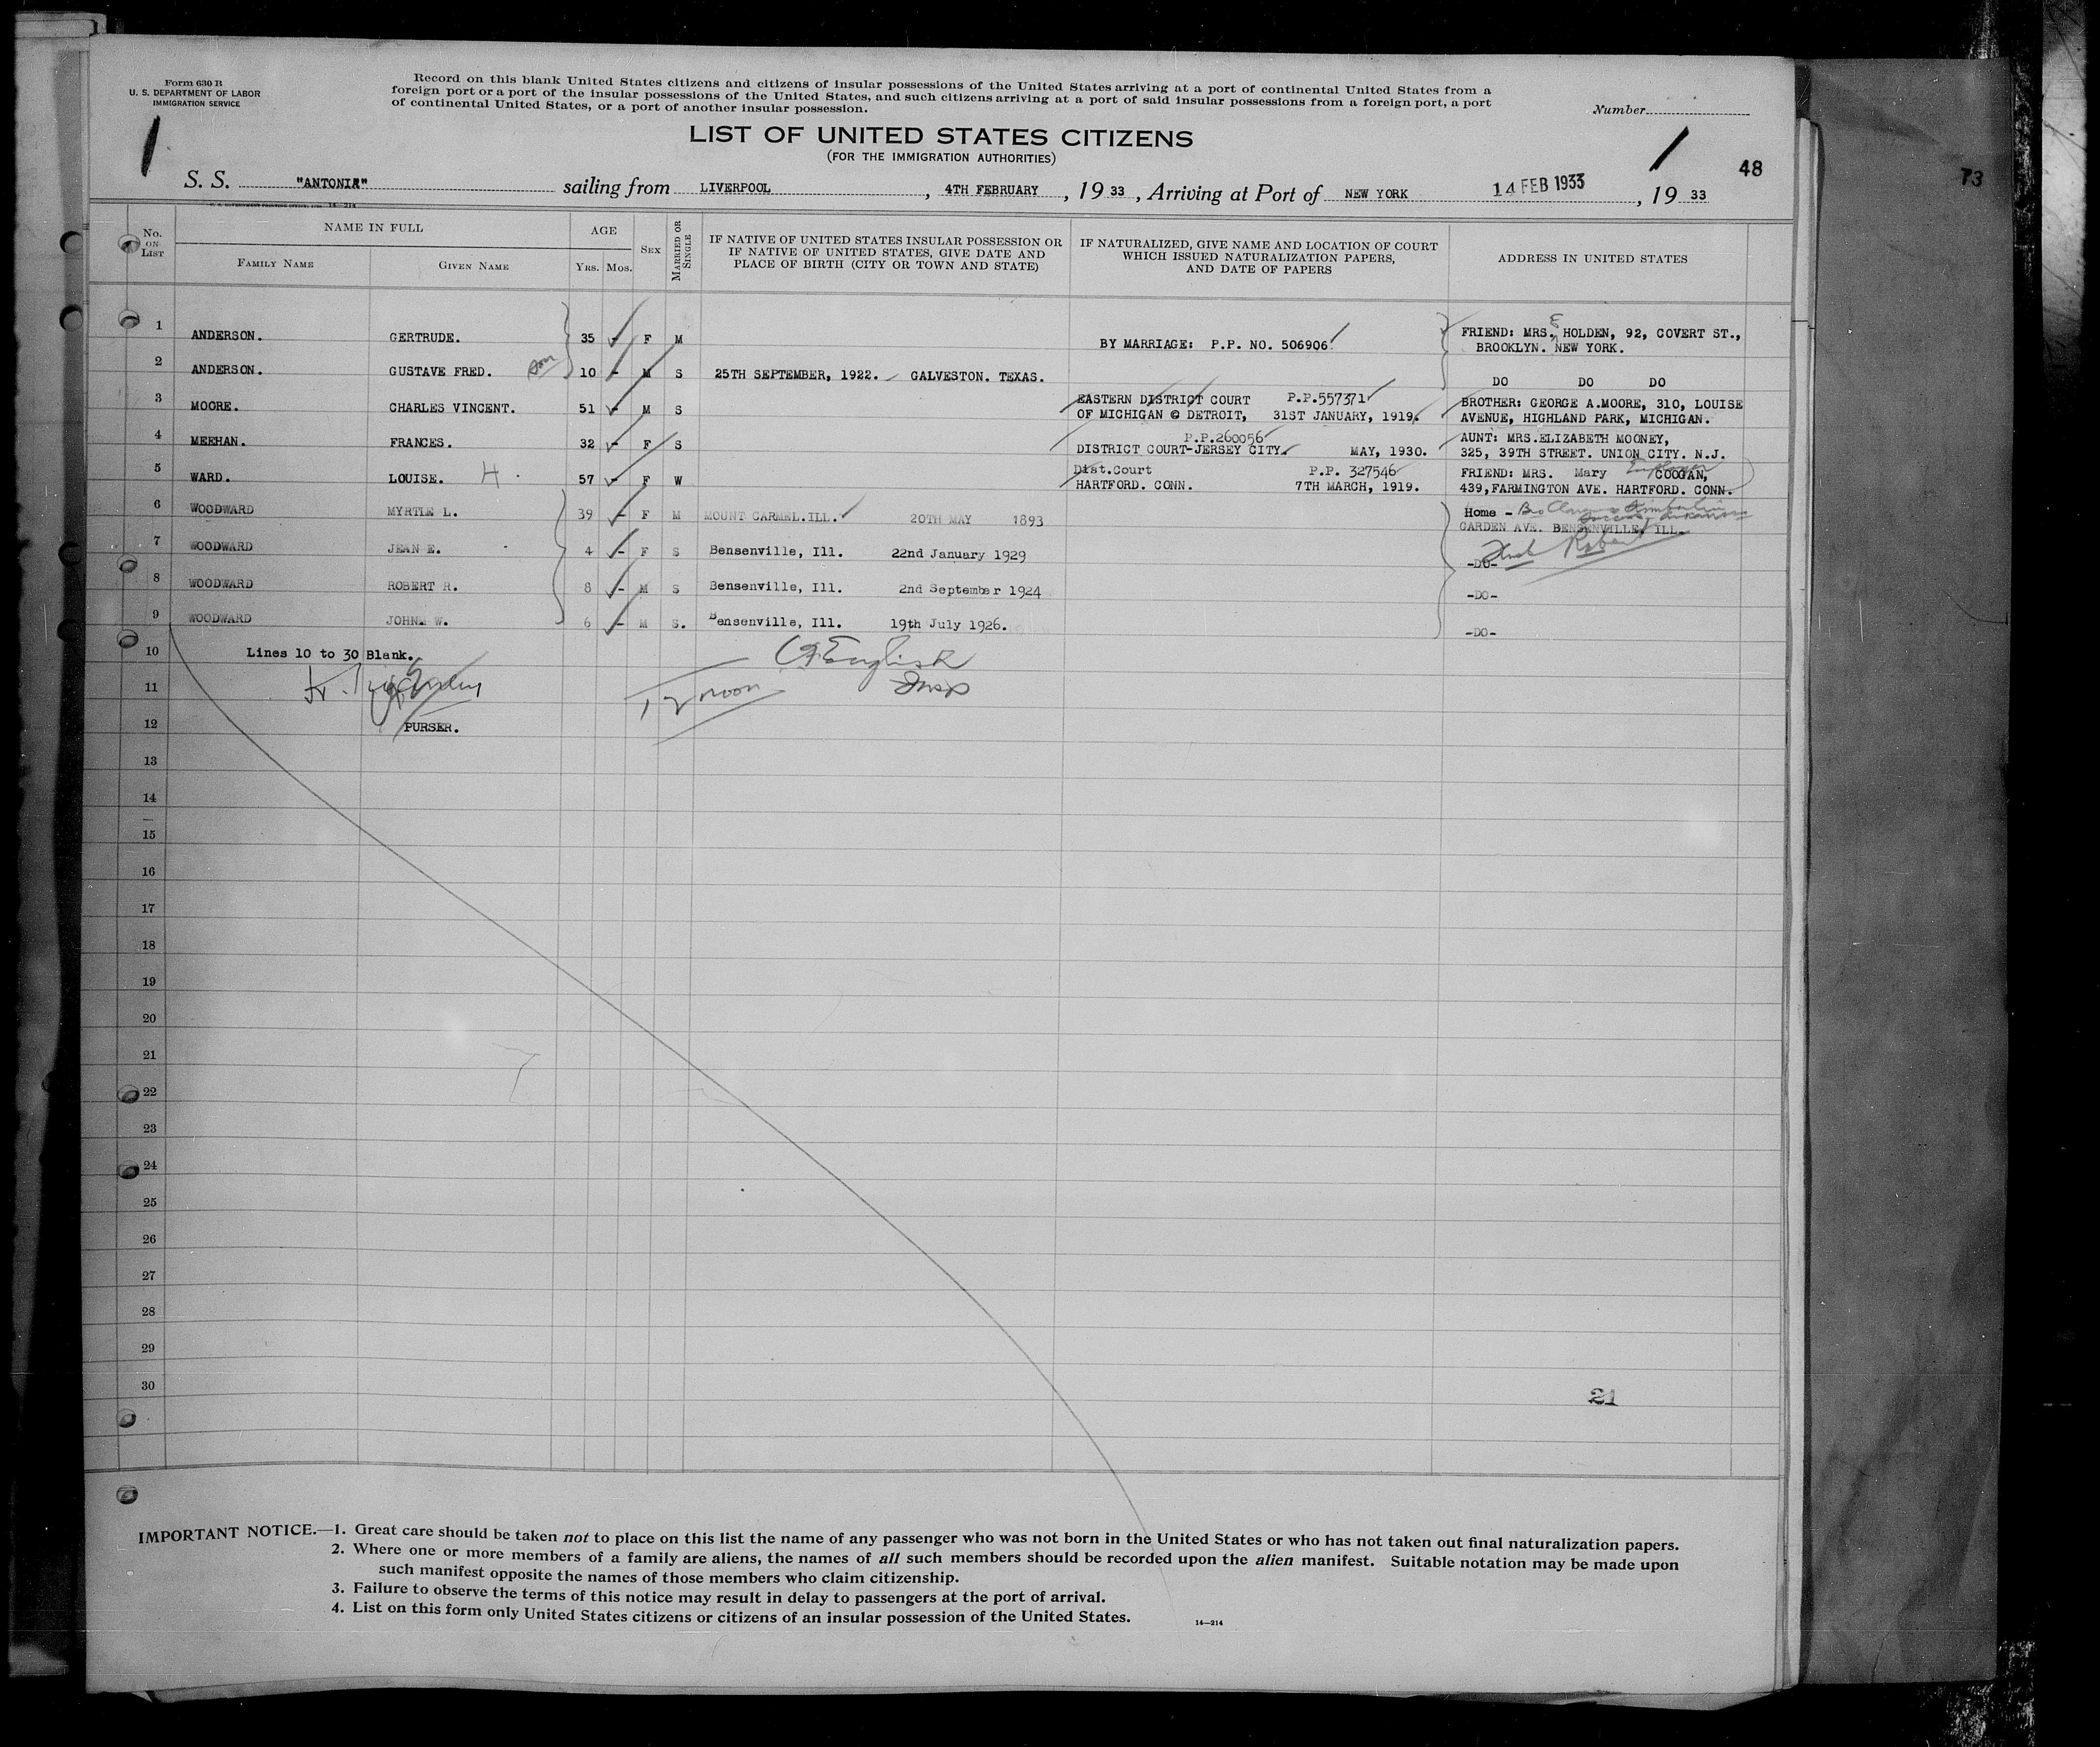 Form 630 B
U. S. DEPARTMENT OF LABOR
IMMIGRATION SERVICE
Record on this blank United States citizens and citizens of insular possessions of the United States arriving at a port of continental United States from a
foreign port or a port of the insular possessions of the United States, and such citizens arriving at a port of said insular possessions from a foreign port, a port
of continental United States, or a port of another insular possession.
Number
1
LIST OF UNITED STATES CITIZENS
(FOR THE IMMIGRATION AUTHORITIES)
1
48
73
S. S. "ANTONIA" sailing from LIVERPOOL, 4TH FEBRUARY, 19 33, Arriving at Port of NEW YORK 14 FEB 1933, 19 33
No. ON LIST
NAME IN FULL
FAMILY NAME
GIVEN NAME
AGE
YRS. MOS.
SEX
MARRIED OR SINGLE
IF NATIVE OF UNITED STATES INSULAR POSSESSION OR
IF NATIVE OF UNITED STATES, GIVE DATE AND
PLACE OF BIRTH (CITY OR TOWN AND STATE)
IF NATURALIZED, GIVE NAME AND LOCATION OF COURT
WHICH ISSUED NATURALIZATION PAPERS,
AND DATE OF PAPERS
ADDRESS IN UNITED STATES
1 ANDERSON. GERTRUDE. 35 - F M BY MARRIAGE: P.P. NO. 506906. FRIEND: MRS. E HOLDEN, 92, COVERT ST.,
BROOKLYN. NEW YORK.
2 ANDERSON. GUSTAVE FRED. son 10 - M S 25TH SEPTEMBER, 1922. GALVESTON. TEXAS. DO DO DO
3 MOORE. CHARLES VINCENT. 51 - M S EASTERN DISTRICT COURT P.P.557371 BROTHER: GEORGE A.MOORE, 310, LOUISE
OF MICHIGAN @ DETROIT, 31ST JANUARY, 1919. AVENUE, HIGHLAND PARK, MICHIGAN.
4 MEEHAN. FRANCES. 32 - F S P.P.260056 AUNT: MRS.ELIZABETH MOONEY,
DISTRICT COURT-JERSEY CITY. MAY, 1930. 325, 39TH STREET. UNION CITY. N.J.
5 WARD. LOUISE. H. 57 - F W Dist.Court P.P. 327546 FRIEND: MRS. Mary Employer COOGAN,
HARTFORD. CONN. 7TH MARCH, 1919. 439,FARMINGTON AVE. HARTFORD. CONN.
6 WOODWARD MYRTLE L. 39 - F M MOUNT CARMEL.ILL. 20TH MAY 1893 Home -
GARDEN AVE. BENSENVILLE, ILL.
7 WOODWARD JEAN E. 4 - F S Bensenville, Ill. 22nd January 1929 -DO- Husb Robert
8 WOODWARD ROBERT R. 8 - M S Bensenville, Ill. 2nd September 1924 -DO-
9 WOODWARD JOHN W. 6 - M S. Bensenville, Ill. 19th July 1926. -DO-
10 Lines 10 to 30 Blank. English
11 12 noon Insp
12 PURSER.
13
14
15
16
17
18
19
20
21
22
23
24
25
26
27
28
29
30
21
IMPORTANT NOTICE.—1. Great care should be taken not to place on this list the name of any passenger who was not born in the United States or who has not taken out final naturalization papers.
2. Where one or more members of a family are aliens, the names of all such members should be recorded upon the alien manifest. Suitable notation may be made upon
such manifest opposite the names of those members who claim citizenship.
3. Failure to observe the terms of this notice may result in delay to passengers at the port of arrival.
4. List on this form only United States citizens or citizens of an insular possession of the United States.
14—214